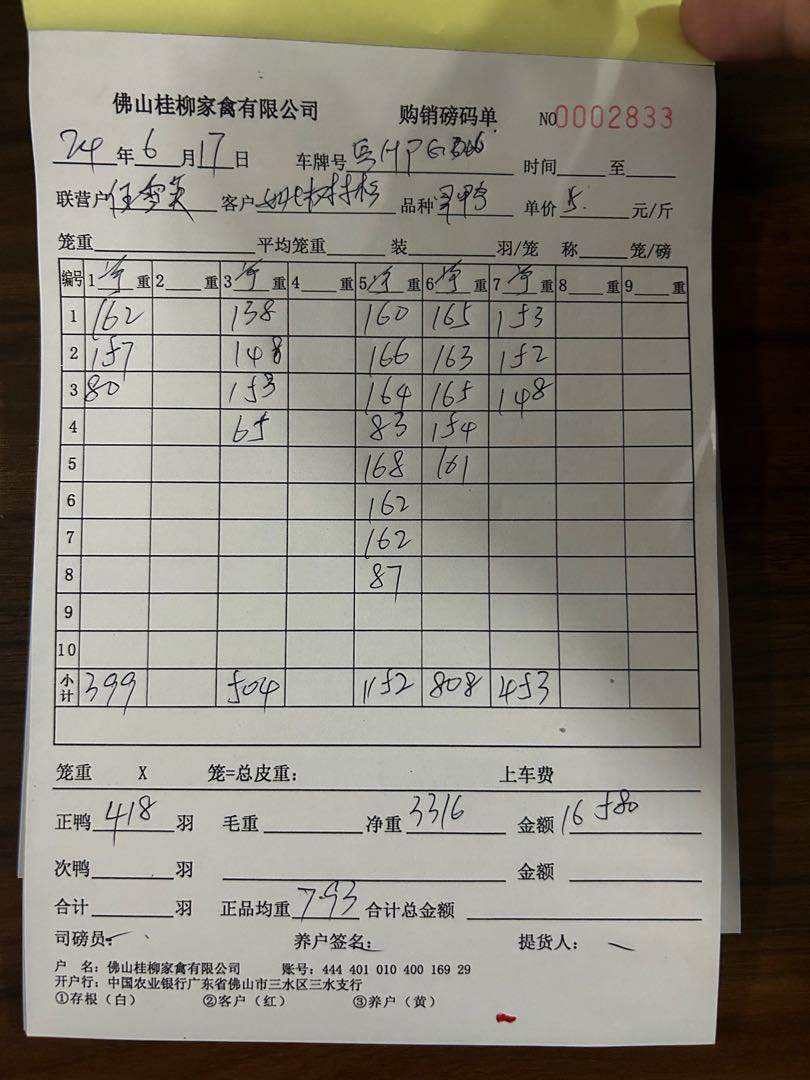 佛山桂柳家禽有限公司 购销磅码单 NO0002833
24年6月17日 车牌号 时间 至
联营户 客户 品种 单价5. 元/斤
笼重 平均笼重 装 羽/笼 称 笼/磅
编号 1净重 2重 3净重 4重 5净重 6净重 7净重 8重 9重
1 162 138 160 165 153
2 157 148 166 163 152
3 80 153 164 165 148
4 65 83 154
5 168 161
6 162
7 162
8 87
9
10
小计 399 504 1152 808 453
笼重 X 笼=总皮重: 上车费
正鸭418羽 毛重 净重3316 金额16580
次鸭 羽 金额
合计 羽 正品均重7.93 合计总金额
司磅员: 养户签名: 提货人:
户 名: 佛山桂柳家禽有限公司 账号: 444 401 010 400 169 29
开户行: 中国农业银行广东省佛山市三水区三水支行
①存根(白) ②客户(红) ③养户(黄)